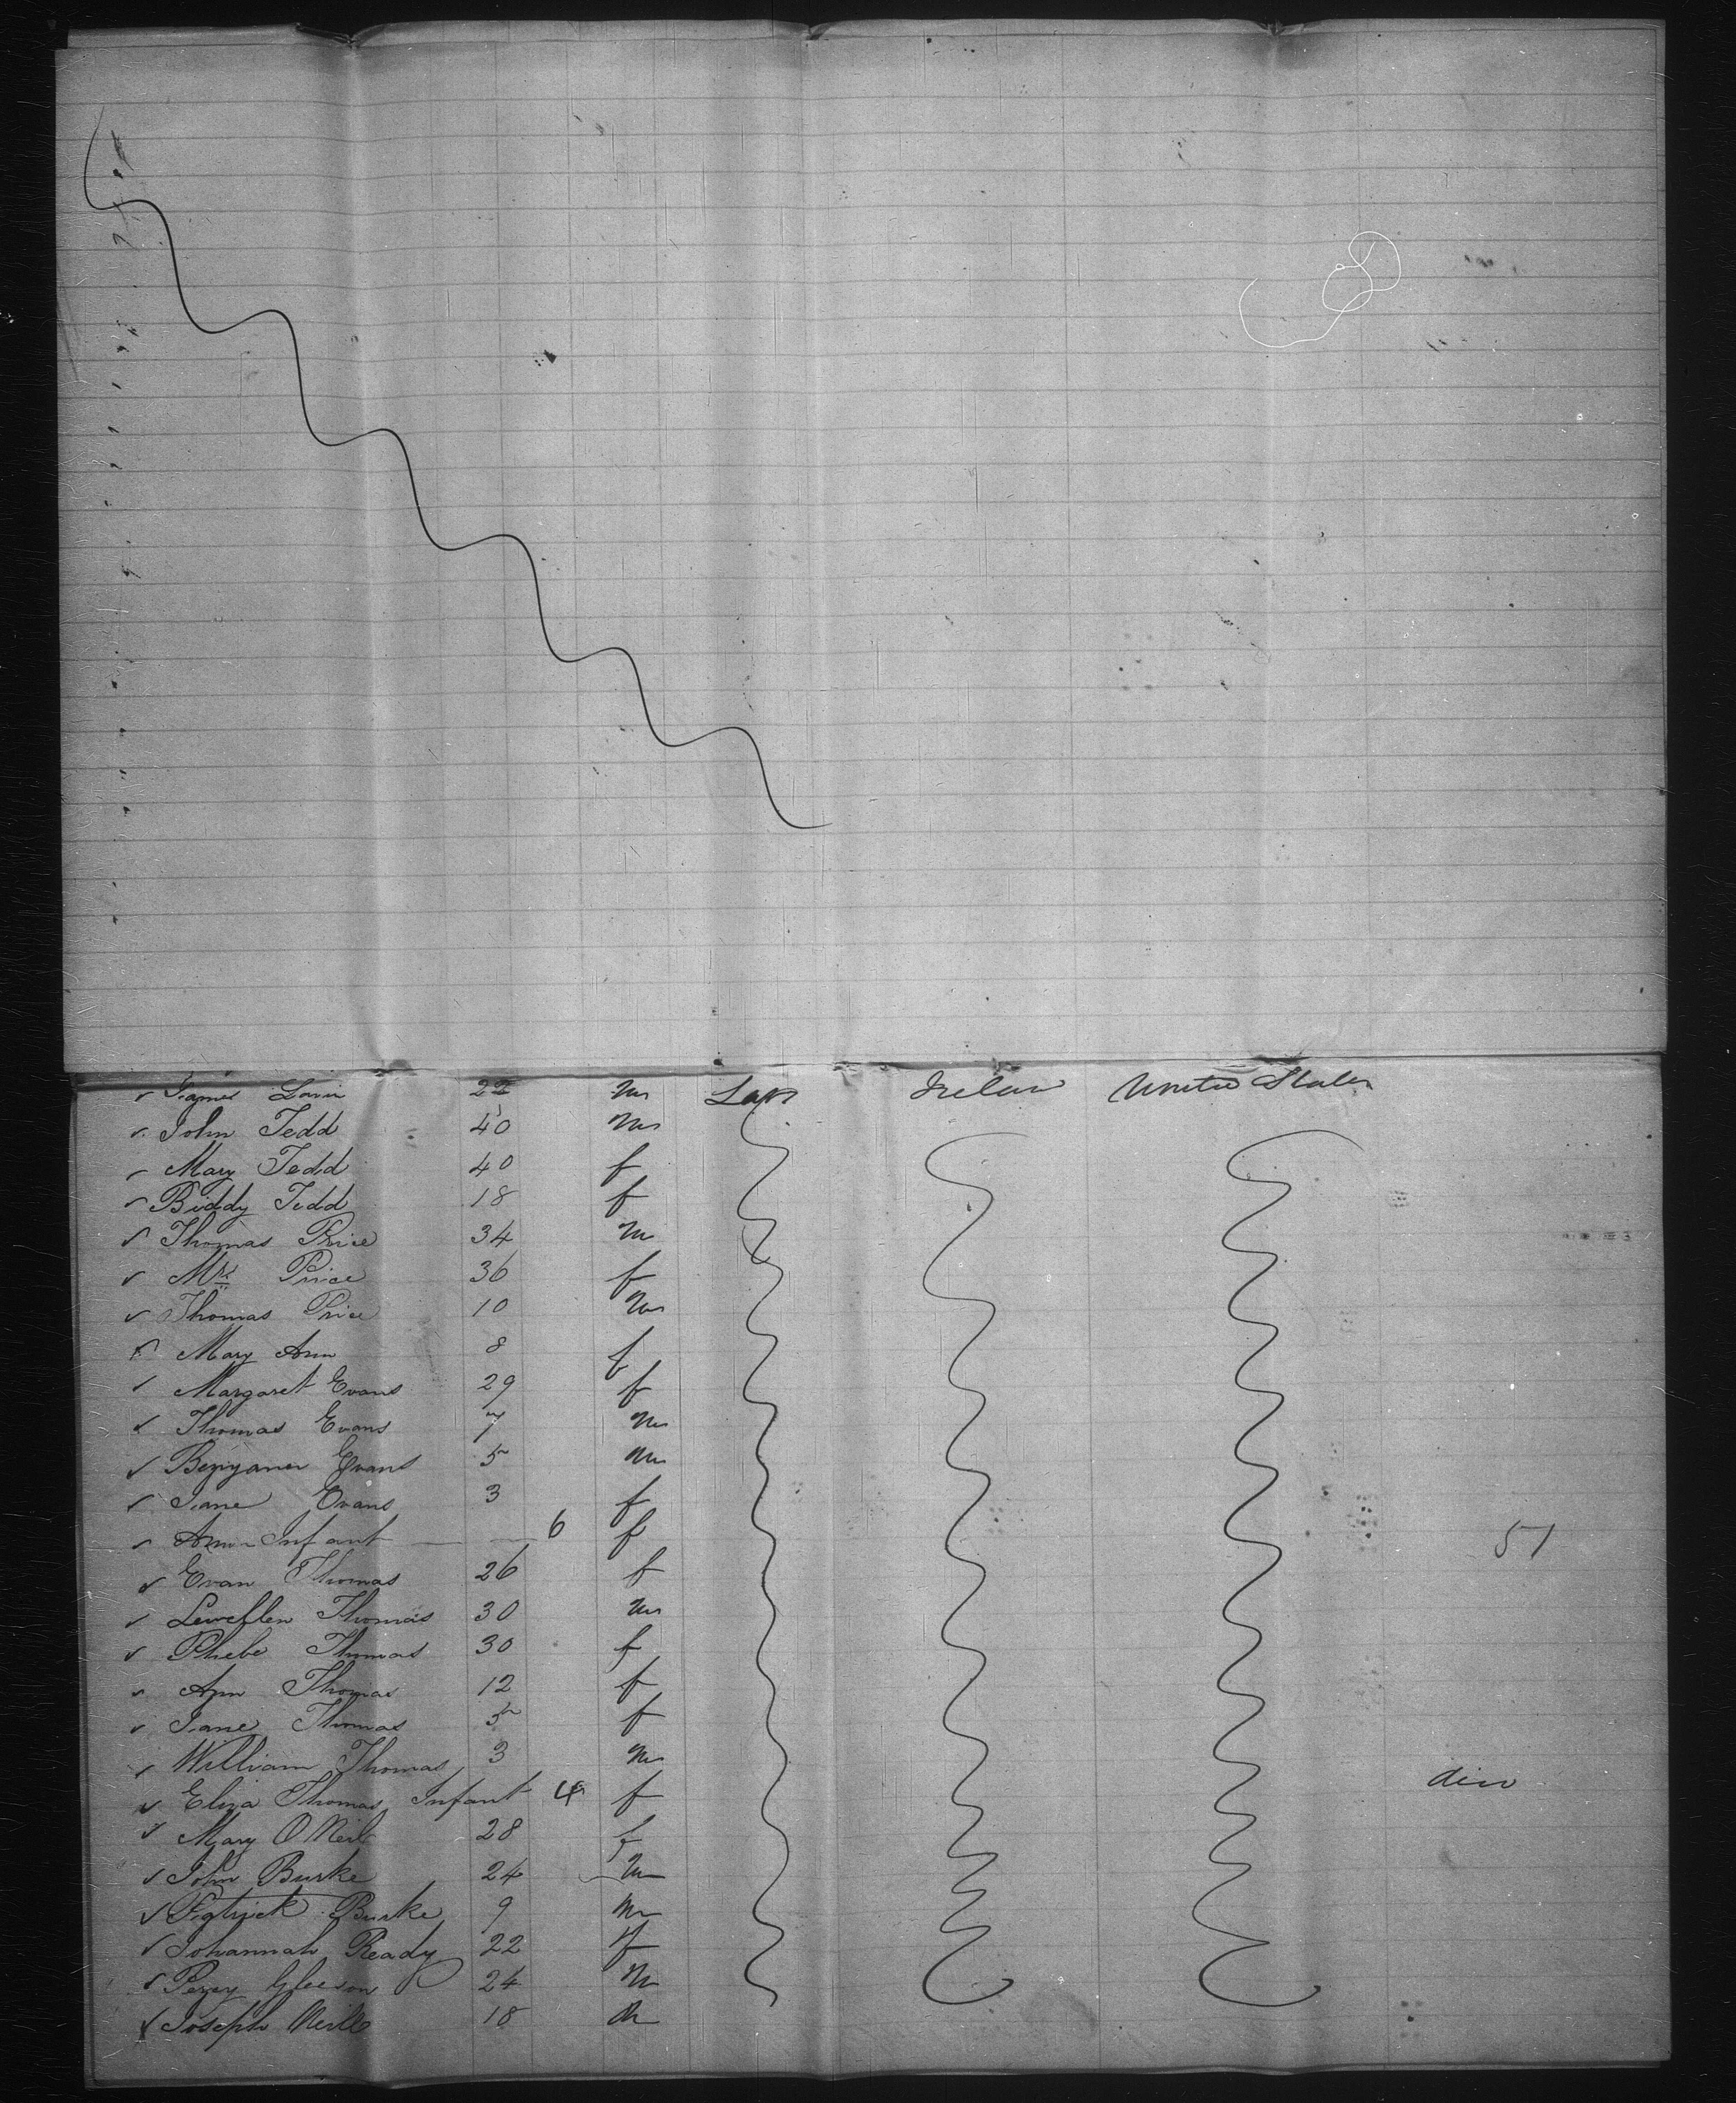 James Lavin 22 m Lab Irelan United States
John Tedd 40 m
Mary Tedd 40 f
Biddy Tedd 18 f
Thomas Price 34 m
Mrs Price 36 f
Thomas Price 10 m
Mary Ann 8 f
Margaret Evans 29 f
Thomas Evans 7 m
Benjamin Evans 5 m
Jane Evans 3 f
Ann Infant — — 6 f 51
Evan Thomas 26 f
Lewellen Thomas 30 m
Phebe Thomas 30 f
Ann Thomas 12 f
Jane Thomas 5 f
William Thomas 3 m
Eliza Thomas Infant 4 f
Mary O Neil 28 f
John Burke 24 m
Patrick Burke 9 m
Johannah Ready 22 f
Gleeson 24 m
Joseph Neill 18 m